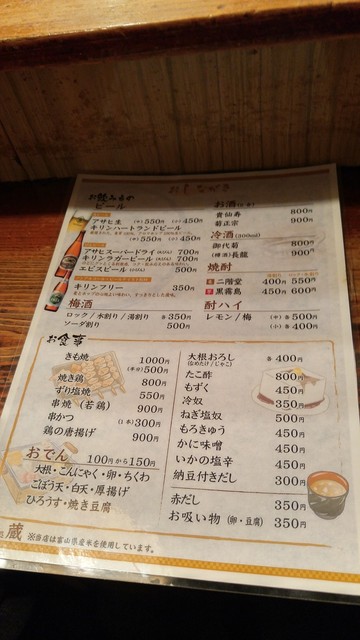 おしながき
お飲みもの
ビール
アサヒ生 (中)550円 (小)450円
キリンハートランドビール
(中)550円 (小)450円
アサヒスーパードライ(大びん) 700円
キリンラガービール(大びん) 700円
エビスビール(小びん) 500円
キリンフリー 350円
梅酒
ロック/水割り/湯割り 各350円
ソーダ割り 500円
お酒
貴仙寿 800円
菊正宗 900円
冷酒(300ml)
御代菊 800円
(樽酒)長龍 900円
焼酎
麦 二階堂 400円 550円
芋 黒霧島 450円 600円
酎ハイ
レモン/梅 (中)500円
(小)各400円
お食事
きも焼 1000円
(半分)500円
焼き鶏 800円
ずり塩焼 550円
串焼(若鶏) 900円
串かつ (1本)300円
鶏の唐揚げ 900円
おでん 100円から150円
大根・こんにゃく・卵・ちくわ
ごぼう天・白天・厚揚げ
ひろうす・焼き豆腐
大根おろし 各400円
(なめたけ/じゃこ)
たこ酢 800円
もずく 450円
冷奴 350円
ねぎ塩奴 500円
もろきゅう 450円
かに味噌 450円
いかの塩辛 450円
納豆付きだし 300円
赤だし 350円
お吸い物(卵・豆腐) 350円
蔵 ※当店は富山県産米を使用しています。